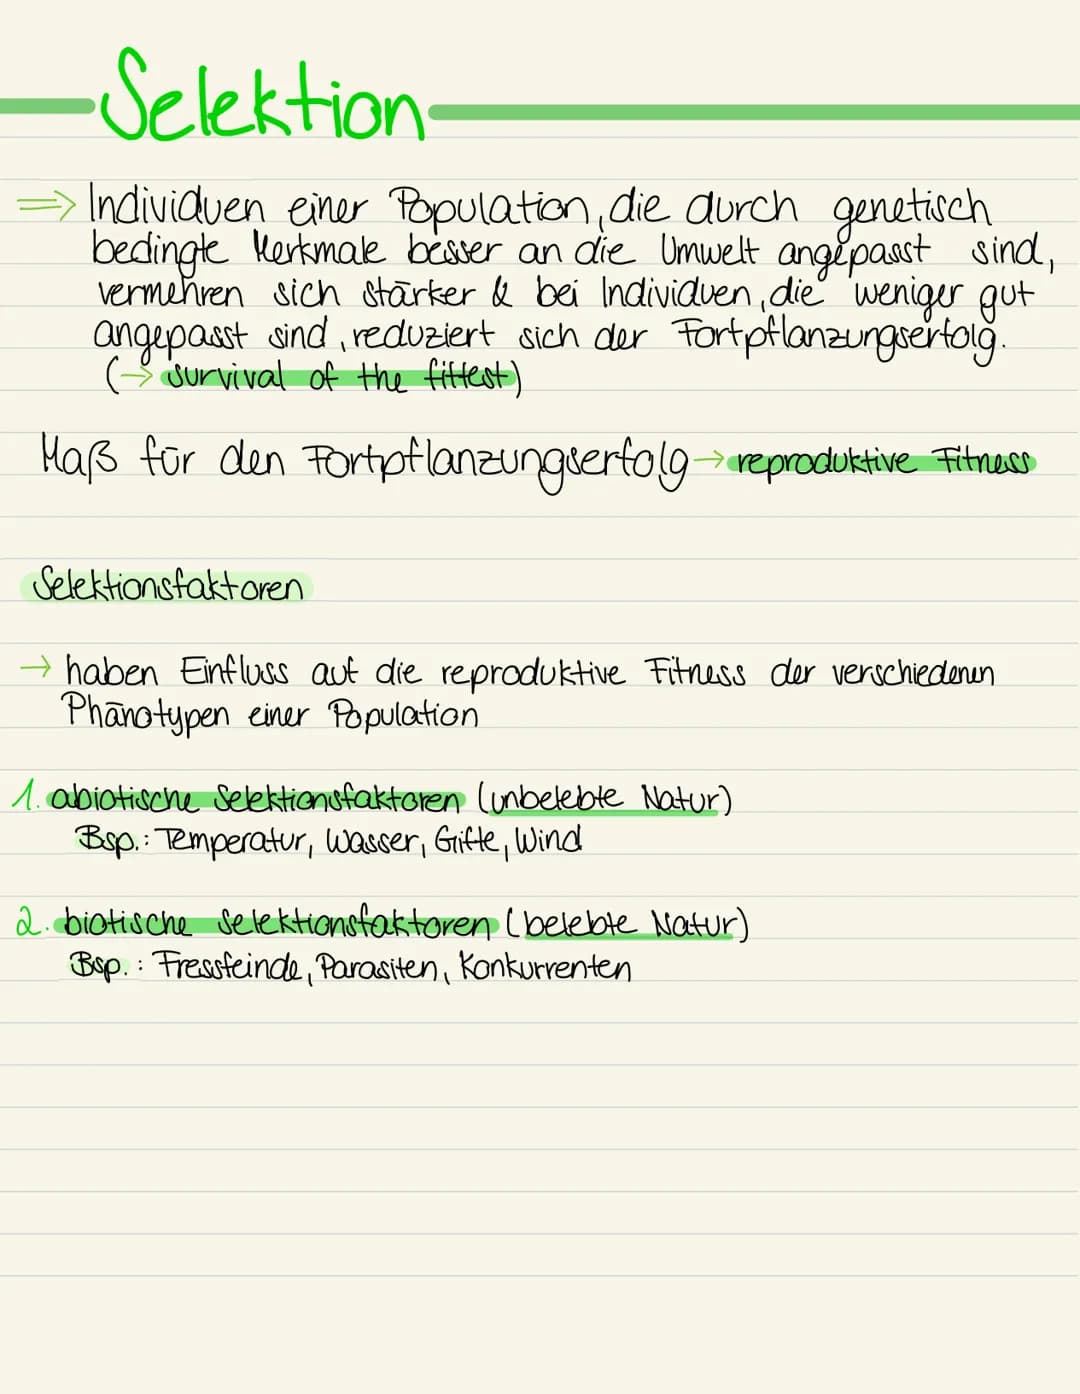 Selektion
=> Individuen einer Population, die durch genetisch
bedingte Merkmale besser an die Umwelt angepasst sind,
vermehren sich stärker & bei Individuen, die weniger gut
angepasst sind, reduziert sich der Fortpflanzungserfolg.
(→ survival of the fittest)
Maß für den Fortpflanzungserfolg → reproduktive Fitness
Selektionsfaktoren
→ haben Einfluss auf die reproduktive Fitness der verschiedenen
Phänotypen einer Population
1. abiotische Selektionsfaktoren (unbelebte Natur)
Bsp.: Temperatur, Wasser, Gifte, Wind
2. biotische Selektionsfaktoren (belebte Natur)
Bsp.: Fressfeinde, Parasiten, Konkurrenten